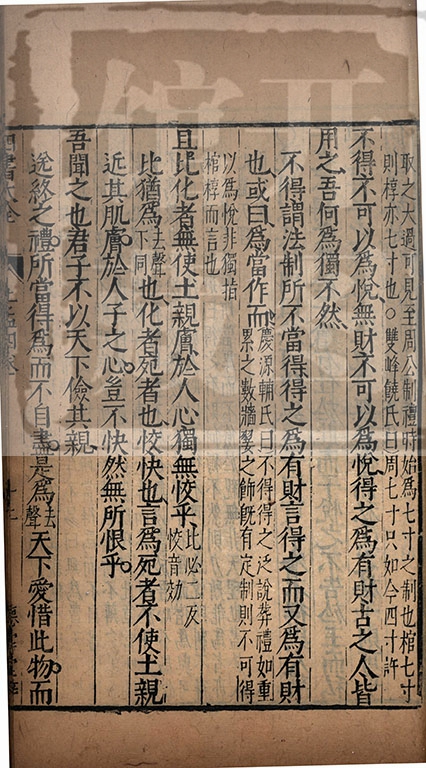 取之大過可見至周公制禮時始為七寸之制也棺七寸
則椁亦七寸也○雙峰饒氏曰周七寸只如今四寸許
不得不可以為悅無財不可以為悅得之為有財古之人皆
用之吾何為獨不然
不得謂法制所不當得得之為有財言得之而又為有財
也或曰為當作而慶源輔氏曰不得得之泛說葬禮如重
累之數牆翣之飾既有定制則不可得
以為悅非獨指
棺椁而言也
且比化者無使土親膚於人心獨無恔乎比必二反
恔音効
比猶為去聲
下同也化者死者也恔快也言為死者不使土親
近其肌膚於人子之心豈不快然無所恨乎
吾聞之也君子不以天下儉其親
送終之禮所當得為而不自盡是為去
聲天下愛惜此物而
四書大全